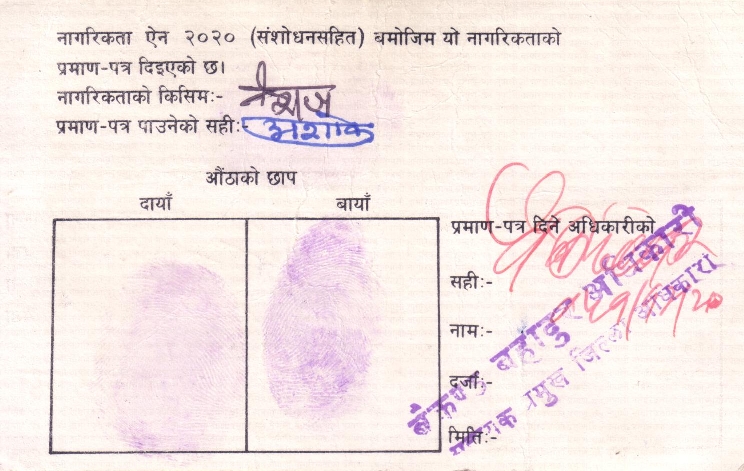 नागरिकता ऐन २०२० (संशोधनसहित) बमोजिम यो नागरिकताको
प्रमाण-पत्र दिइएको छ।
नागरिकताको किसिमः- वंशज
प्रमाण-पत्र पाउनेको सहीः- अशोक
औंठाको छाप
दायाँ बायाँ
प्रमाण-पत्र दिने अधिकारीको
सहीः-
नामः-
दर्जाः-
मितिः-
बहादुर अधिकारी
प्रमुख जिल्ला अधिकारी